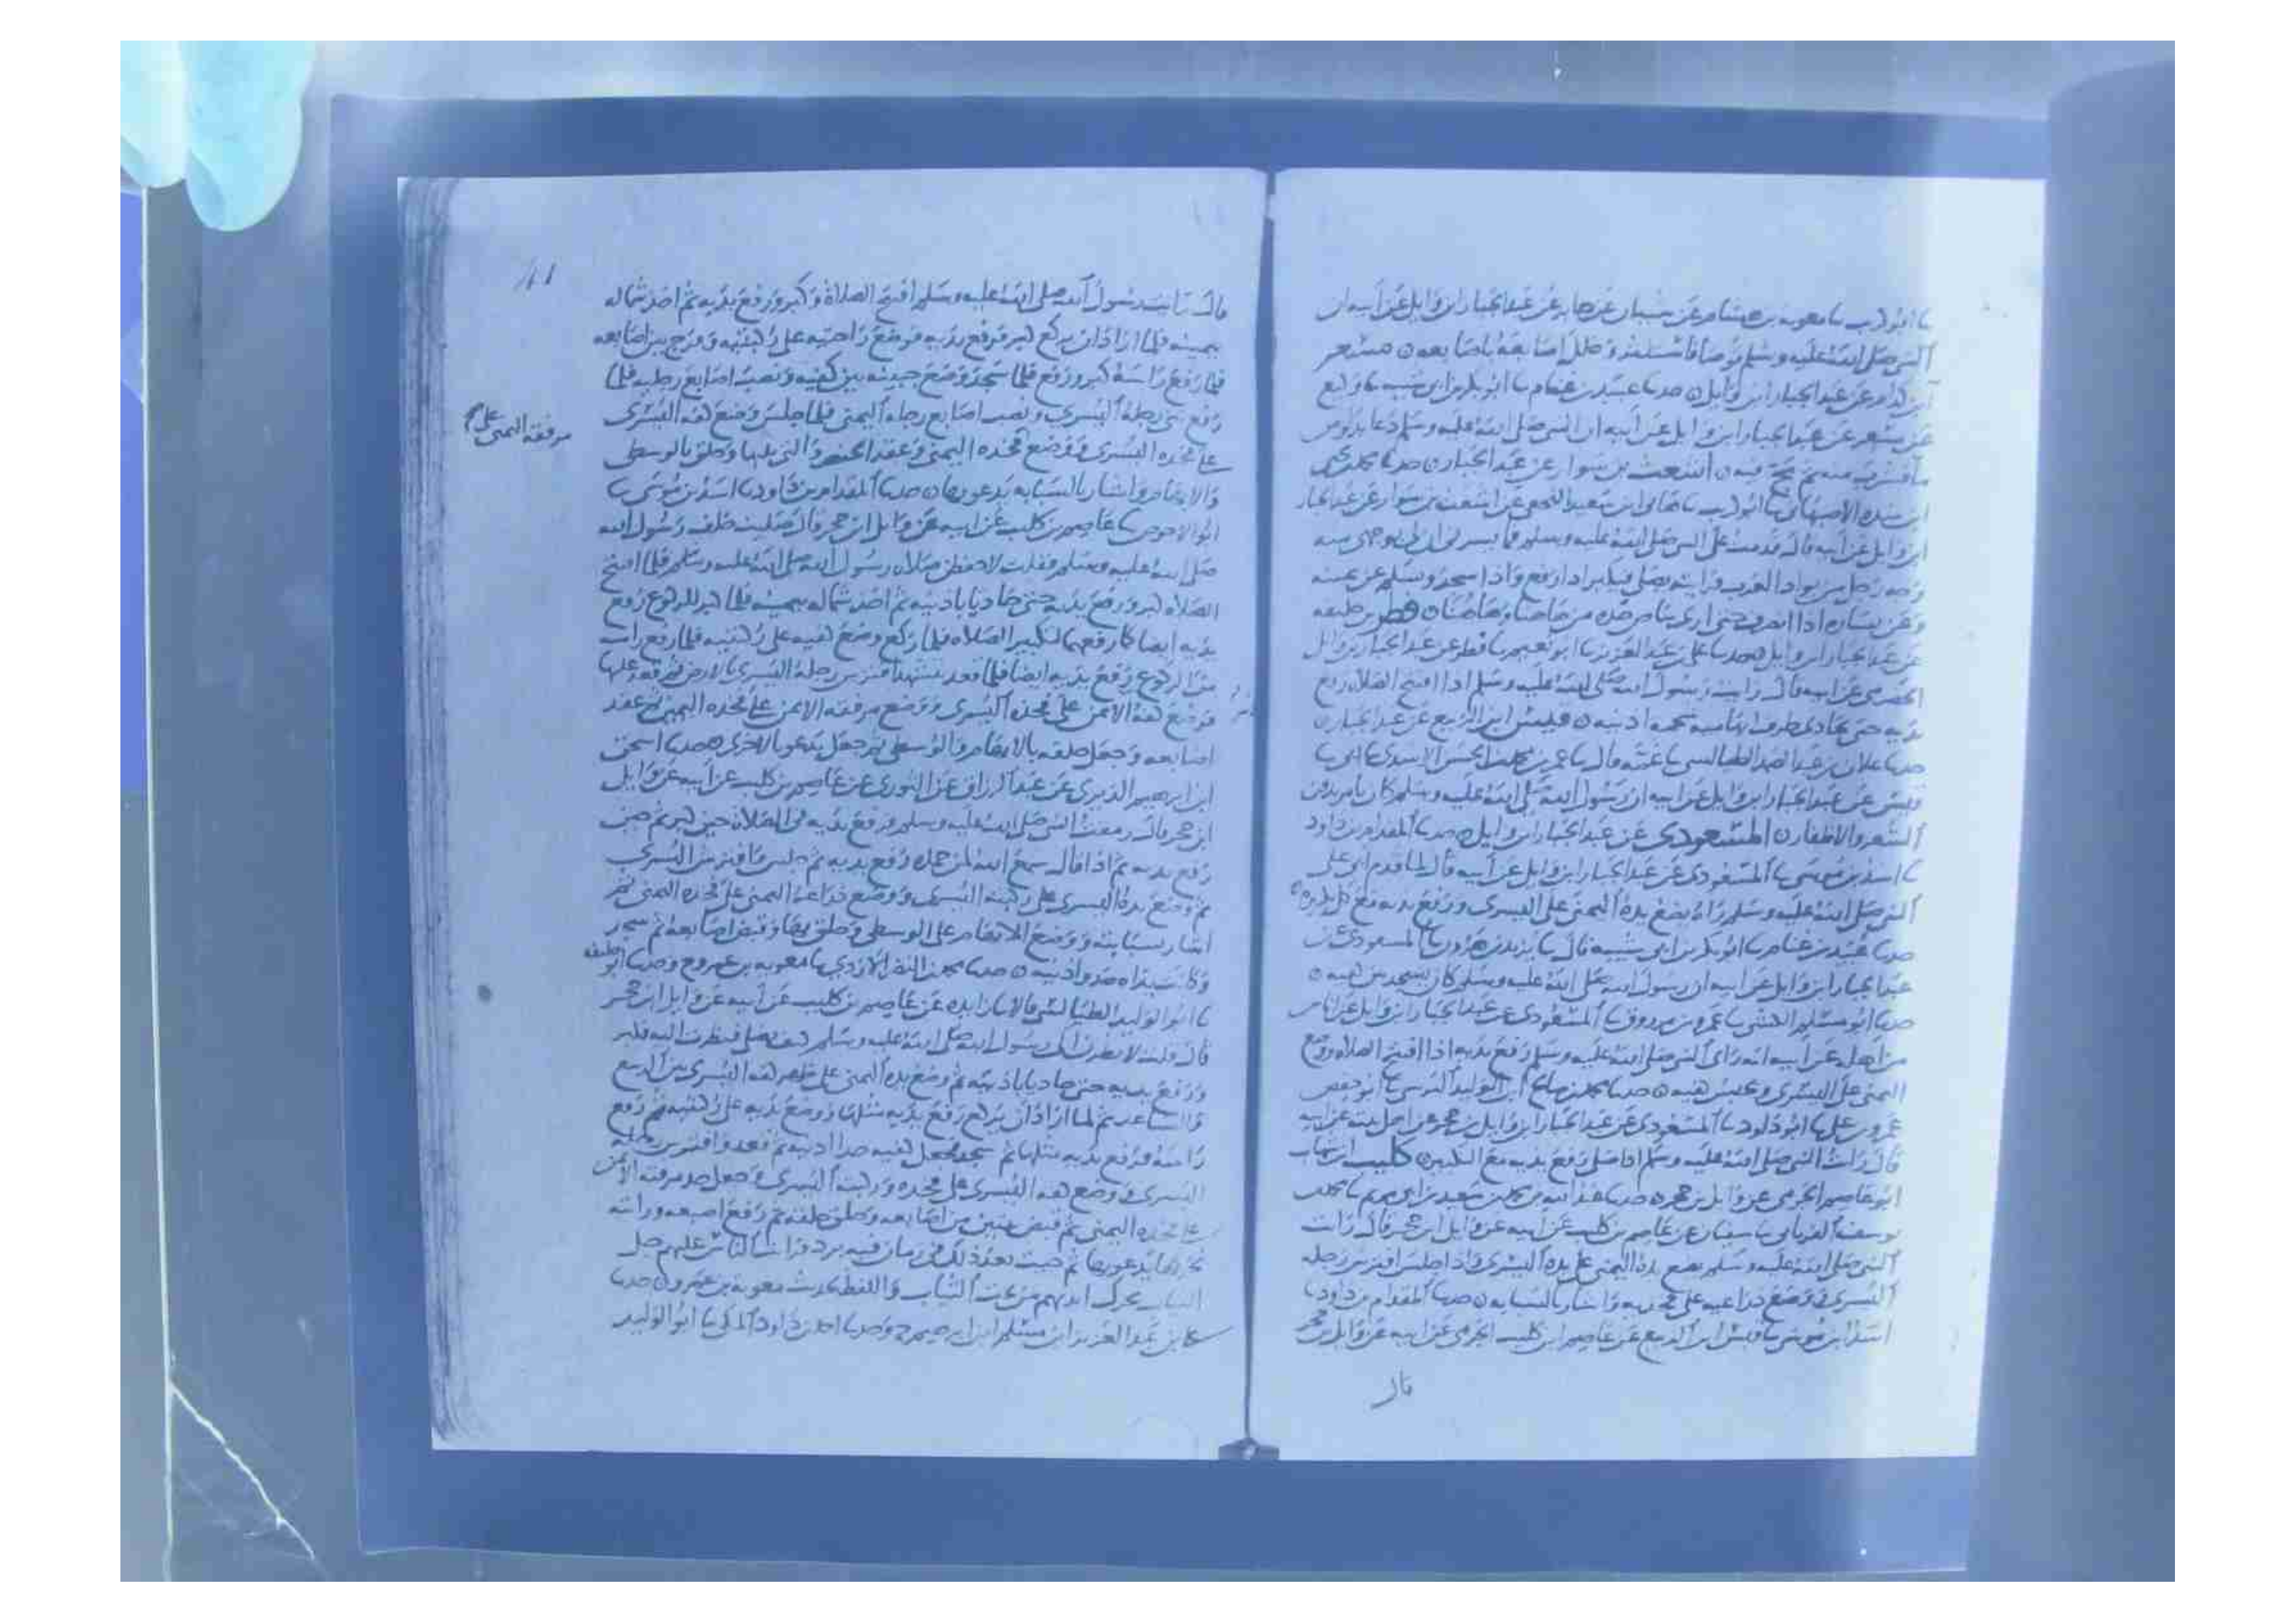 نا ابو كريب نا معوية بن هشام عن شيبان عن جابر عن عبد الجبار ابن وايل عن ابيه ان
النبي صلى الله عليه وسلم توضأ فاستنثر وخلل اصابعه باصابعه ن مسعر
ابن كدام عن عبد الجبار ابن وايل ن حدثنا عبيد بن غنام نا ابو بكر بن ابي شيبة نا وكيع
عن مسعر عن عبد الجبار ابن وايل عن ابيه ان النبي صلى الله عليه وسلم دعا بدلو من
ما فشرب منه ثم مج فيه ن اشعث بن سوار عن عبد الجبار ن حدثنا محمد بن يحيى
ابن منده الاصبهاني نا ابو كريب نا بن سعيد النخعي عن اشعث بن سوار عن عبد الجبار
ابن وايل عن ابيه قال قدمت على النبي صلى الله عليه وسلم
يصلي فيكبر اذا رفع واذا سجد وسلم عن يمينه
وعن يساره اذا انصرف حتى ارى بياض خده من هاهنا وهاهنا ن فطر بن خليفة
عن عبد الجبار ابن وايل حدثنا علي بن عبد العزيز نا ابو نعيم نا فطر عن عبد الجبار بن وايل
الحضرمي عن ابيه قال رايت رسول الله صلى الله عليه وسلم اذا افتتح الصلاة رفع
يديه حتى تحاذي طرف ابهاميه شحمة اذنيه ن قيس ابن الربيع عن عبد الجبار ن
حدثنا علان بن عبد الصمد الطيالسي ما غمه قال نا عمر بن محمد بن الحسن الاسدي نا ابي نا
قيس عن عبد الجبار ابن وايل عن ابيه ان رسول الله صلى الله عليه وسلم كان يامر بدفن
الشعر والاظفار ن المسعودي عن عبد الجبار ابن وايل حدثنا المقدام بن داود
نا اسد بن موسى نا المسعودي عن عبد الجبار ابن وايل عن ابيه قال لما قدم ابي على
النبي صلى الله عليه وسلم راه يضع يده اليمنى على اليسرى ورفع يديه مع كل تكبيرة
حدثنا عبيد بن غنام نا ابو بكر بن ابي شيبة قال نا يزيد بن هرون نا المسعودي عن
عبد الجبار ابن وايل عن ابيه ان رسول الله صلى الله عليه وسلم كان يسجد بين كفيه ن
حدثنا ابو مسلم الكشي نا عمرو بن مرزوق نا المسعودي عن عبد الجبار ابن وايل عن ناس
من اهله عن ابيه انه راى النبي صلى الله عليه وسلم رفع يديه اذا افتتح الصلاة ووضع
اليمنى على اليسرى وبين كفيه ن حدثنا محمد بن صالح ابن الوليد النرسي نا ابو حفص
عمرو بن علي نا ابو داود نا المسعودي عن عبد الجبار ابن وايل بن حجر عن اهل بيته عن ابيه
قال رايت النبي صلى الله عليه وسلم اذا صلى رفع يديه مع التكبير ن كليب ابن شهاب
ابو عاصم الجرمي عن وايل بن حجر ن حدثنا عبد الله بن محمد بن سعيد بن ابي مريم نا محمد بن
يوسف الفريابي نا سفيان عن عاصم بن كليب عن ابيه عن وايل ابن حجر قال رايت
النبي صلى الله عليه وسلم يضع يده اليمنى على يده اليسرى واذا جلس افترش رجله
اليسرى ووضع ذراعيه على فخذيه واشار بالسبابة ن حدثنا المقدام بن داود نا
اسد ابن موسى نا قيس ابن الربيع عن عاصم ابن كليب الجرمي عن ابيه عن وايل بن حجر
قال
قال رسول الله صلى الله عليه وسلم افتتح الصلاة وكبر ورفع يديه ثم اخذ شماله
بيمينه فلما اراد ان يركع كبر فرفع يديه فوضع راحتيه على ركبتيه وفرج بين اصابعه
فلما رفع راسه كبر ورفع فلما سجد وضع جبينه بين كفيه ونصب اصابع رجليه فلما
رفع ثنى رجله اليسرى ونصب اصابع رجله اليمنى فلما جلس وضع كفه اليسرى
على فخذه اليسرى ووضع فخذه اليمنى وعقد الخنصر والتي يليها وحلق بالوسطى
مرفقه اليمنى على
والابهام واشار بالسبابة يدعو بها ن حدثنا المقدام بن داود نا اسد بن موسى نا
ابو الاحوص نا عاصم بن كليب عن ابيه عن وايل ابن حجر قال صليت خلف رسول الله
صلى الله عليه وسلم فقلت لاحفظن صلاة رسول الله صلى الله عليه وسلم فلما افتتح
الصلاة كبر ورفع يديه حتى حاذيا باذنيه ثم اخذ شماله بيمينه فلما كبر للركوع رفع
يديه ايضا كما رفعهما لتكبير الصلاة فلما ركع وضع كفيه على ركبتيه فلما رفع راسه
من الركوع رفع يديه ايضا فلما قعد يتشهد افترش رجله اليسرى بالارض ثم قعد عليها
فوضع كفه الايمن على فخذه اليسرى ووضع مرفقه الايمن على فخذه اليمين ثم عقد
اصابعه وجعل حلقه بالابهام والوسطى ثم جعل يدعو بالاخرى حدثنا اسحق
ابن ابرهيم الدبري عن عبد الرزاق عن الثوري عن عاصم بن كليب عن ابيه عن وايل
ابن حجر قال رمقت النبي صلى الله عليه وسلم فرفع يديه في الصلاة حين كبر ثم حين
رفع يديه ثم اذا قال سمع الله لمن حمده رفع يديه ثم جلس فافترش اليسرى
ثم وضع يده اليسرى على ركبته اليسرى ووضع ذراعه اليمنى على فخذه اليمنى ثم
اشار بسبابته ووضع الابهام على الوسطى وحلق بها وقبض اصابعه ثم سجد
وكانت يداه حذو اذنيه ن حدثنا محمد بن النضر الازدي نا معوية بن عمرو ح وحدثنا ابو خليفة
نا ابو الوليد الطيالسي قالا نا زايدة عن عاصم بن كليب عن ابيه عن وايل ابن حجر
قال قلت لانظرن الى رسول الله صلى الله عليه وسلم كيف يصلي فنظرت اليه فكبر
ورفع يديه حتى حاذيا باذنيه ثم وضع يده اليمنى على ظهر كفه اليسرى بين الرسغ
والساعد ثم لما اراد ان يركع رفع يديه مثلها ووضع يديه على ركبتيه ثم رفع
راسه فرفع يديه مثلها ثم سجد فجعل كفيه حذا اذنيه ثم قعد وافترش رجله
اليسرى ووضع كفه اليسرى على فخذه وركبته اليسرى وجعل حد مرفقه الايمن
على فخذه اليمنى ثم قبض ثنتين من اصابعه وحلق حلقة ثم رفع اصبعه ورايته
يحركها يدعو بها ثم جيت بعد ذلك في زمان فيه برد فرايت الناس عليهم جل
الثياب تحرك ايديهم من تحت الثياب واللفظ لحديث معوية بن عمرو ن حدثنا
علي بن عبد العزيز ابن مسلم ابن ابرهيم ح وحدثنا احمد بن داود المكي نا ابو الوليد